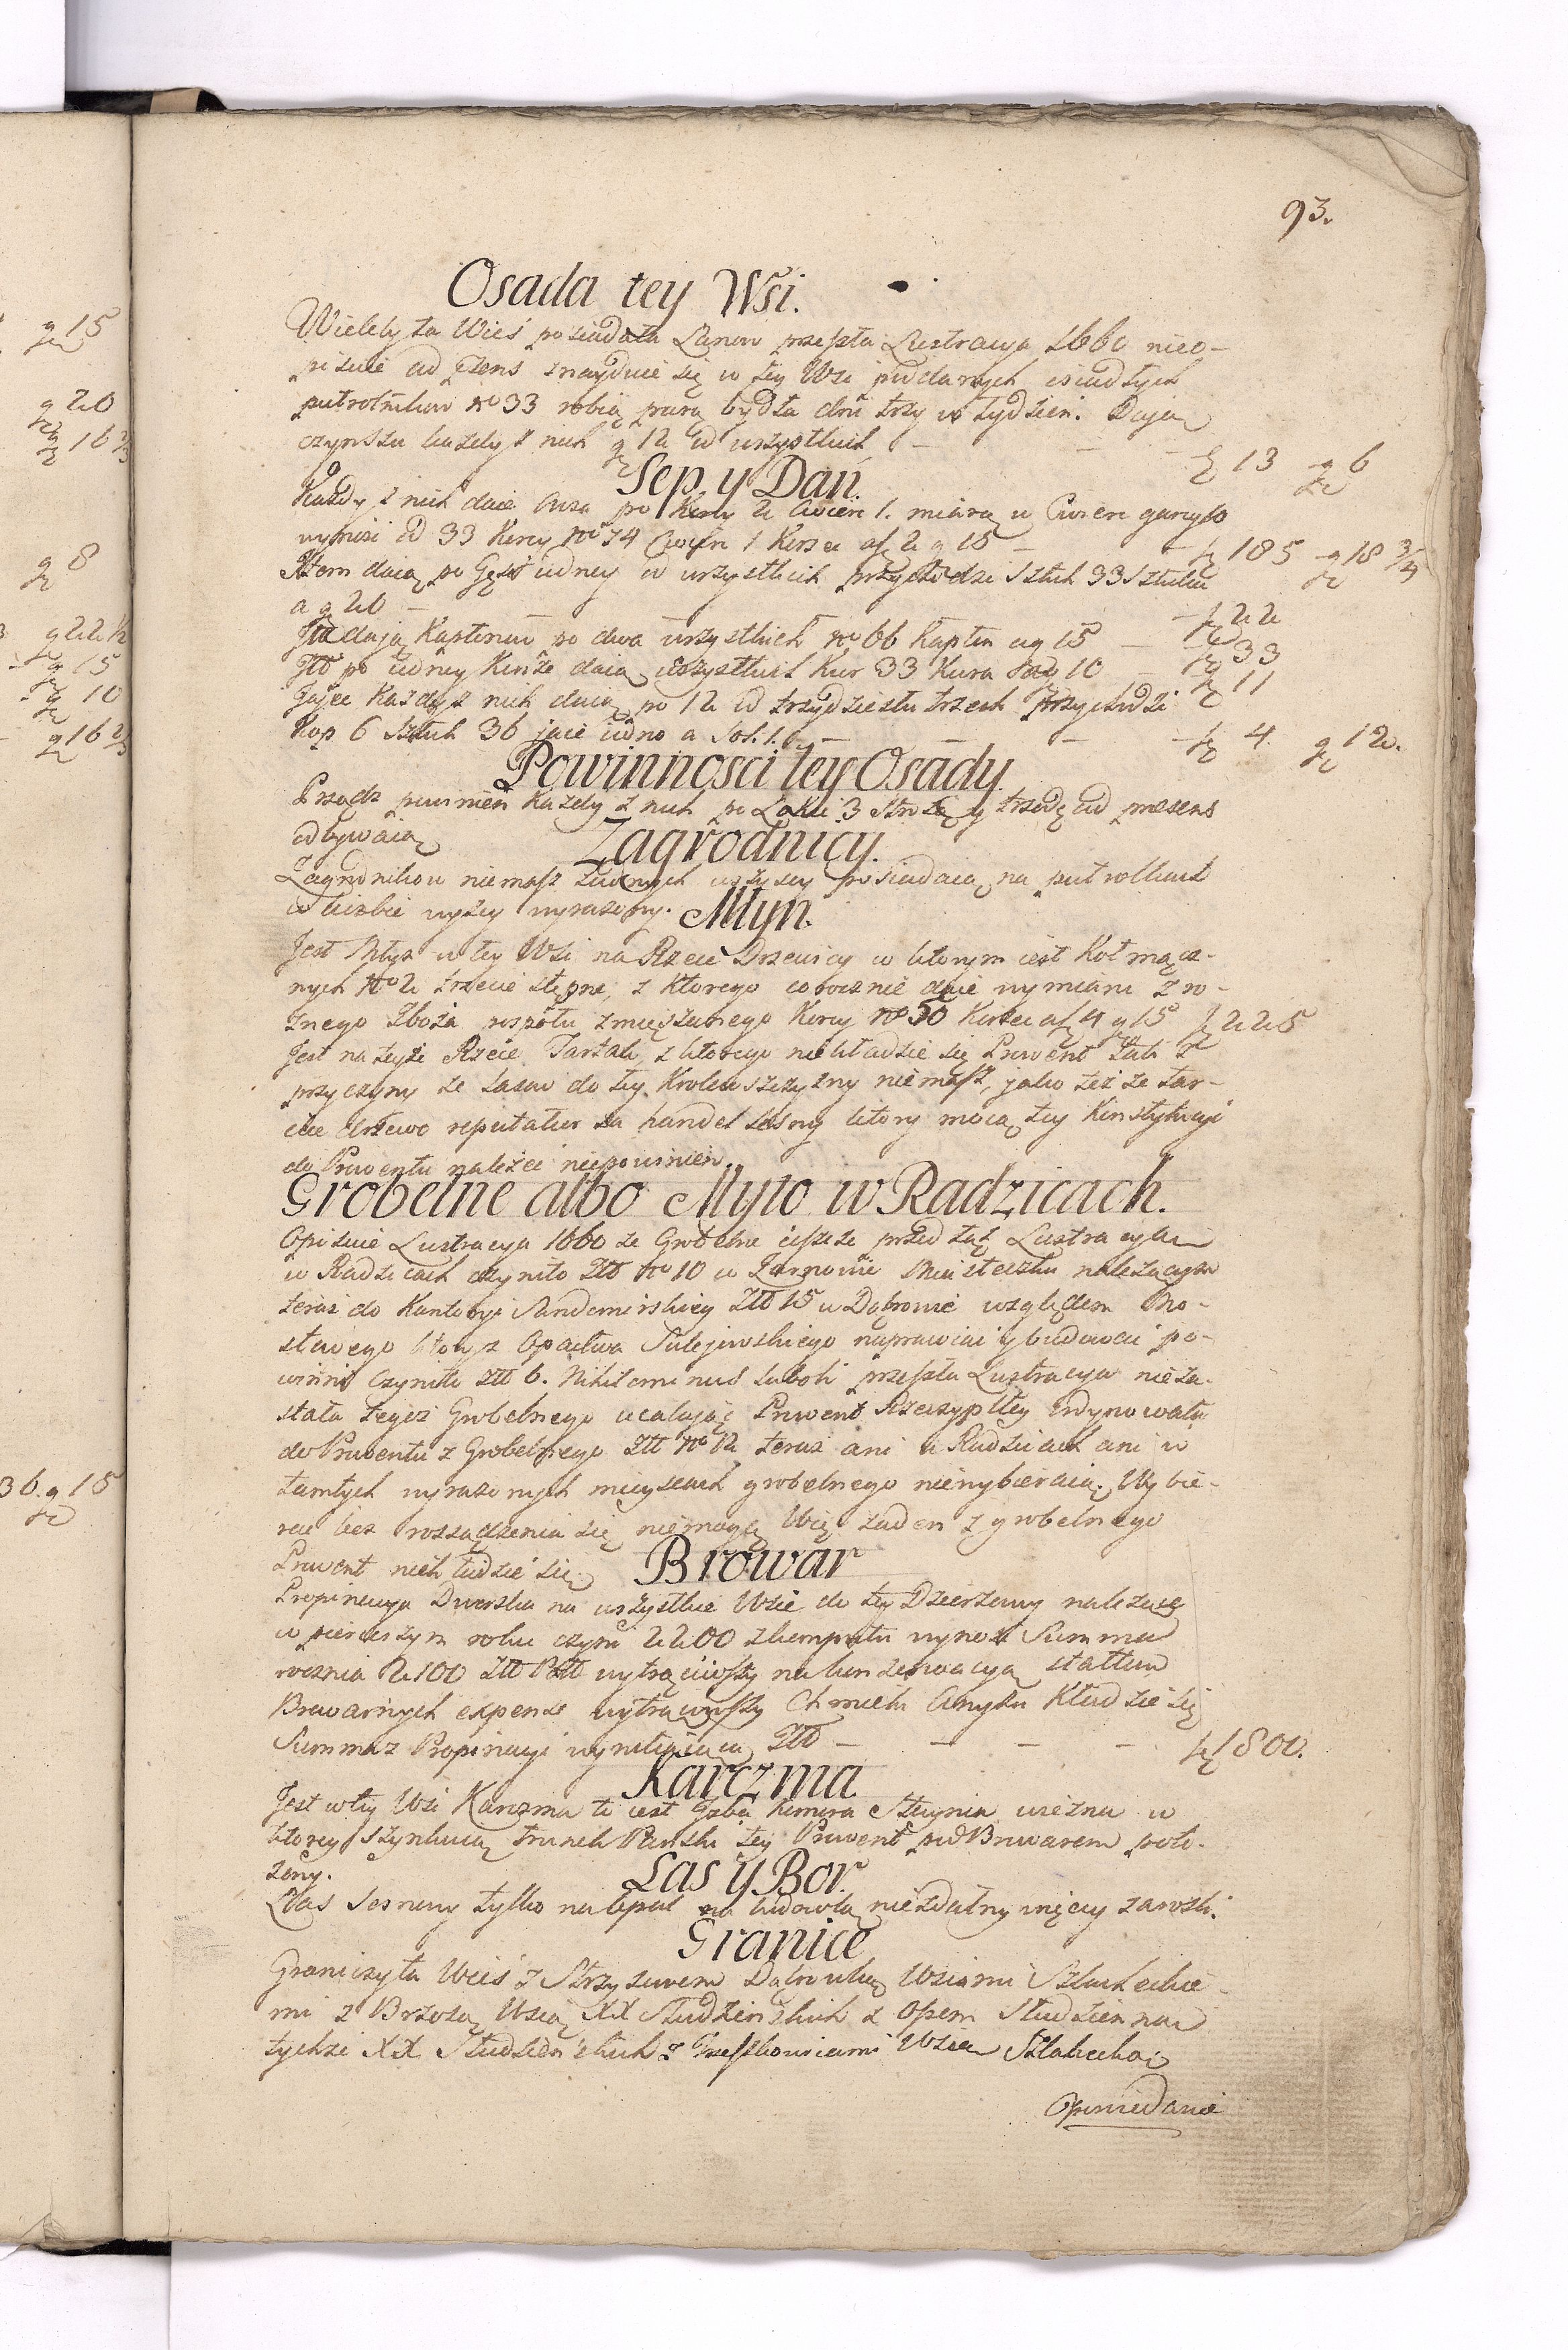 93.
Osada tey Wsi.
Wieleby ta Wieś posiadała Łanow przeszła Lustracya 1660 nieo-
pisuie ad psens znayduie się w tey Wsi poddanych osiadłych
pułrolnikow No 33 robią parą bydła dni trzy w tydzień. Daią
czynszu każdy z nich g 12 od wszystkich — — — f 13 g 6
Sep y Dań
Każdy z nich daie Owsa po Korcy 2 Cwierć 1. miarą w Cwierć garcy
wynosi od 33 Korcy No 74 Cwierć 1 Korzec a f 2 g 15 — f 185 g 18 3/4
Item daią po Gęsi iedney od wszystkich przychodzi Sztuk 33 Sztuka
a g 20 — — — — f 22
Itt daią Kapłonow po dwa wszystkich No 66 Kapłon a g 15 — f 33
Itt po iedney Kurze daią wszystkich Kur 33 Kura a g 10 f 11
Jajec Każdy z nich daią po 12 od trzydziestu trzech przychodzi
Kop 6 Sztuk 36 jaie iedno a Sol. 1. — — — f 4. g 12.
Powinności tey Osady
Prządz powinien każdy z nich po Łokci 3 Stróżą y trzodę ad praesens
odbywaią
Zagrodnicy.
Zagrodnikow niemasz żadnych wszyscy posiadaią na pułrolkach
w liczbie wyżey wyrażony. Młyn.
Jest Młyn w tey Wsi na Rzece Drzewicy w ktorym iest Koł mącz-
nych No 2 trzecie stępne, z ktorego corocznie daie wymiaru z ro-
żnego Zboża pospołu zmieszanego Korcy No 50 Korzec a f 4 g 15 f 225
Jest na teyże Rzece Tartak, z ktorego niekładzie się Prowent tak z
przyczyny że Lasow do tey Krolewszczyzny niemasz, jako też że tar-
cie drzewo reputatur za handel leśny ktory mocą tey Konstytucyi
do Prowentu należeć niepowinien.
Grobelne albo Myto w Radzicach.
Opisuie Lustracya 1660 że Grobelne ieszcze przed tąż Lustracyą
w Radzicach czyniło Złł No 10 w Żarnowie Miasteczku należącym
teraz do Kantoryi Sandomirskiey Złł 15 w Dąbrowie względem Mo-
stowego ktory z Opactwa Sulejowskiego naprawiać y budować po-
winni Czyniło Złł 6. Nihilominus luboli przeszła Lustracya nieza-
stała tegoż Grobelnego ocalając Prowent Rzeczyptey Ordynowała
do Prowentu z Grobelnego Złł No 12 teraz ani w Radzicach ani w
tamtych wyrażonych mieyscach grobelnego niewybieraią. Wybie-
rać bez rozsądzenia się niemogą Więc żaden z grobelnego
Prowent niekładzie się. Browar
Propinacya Dworska na wszystkie Wsie do tey Dzierżawy należące
w pierwszym roku czyni 2200 z komputu wynosi Summa
rocznia 2100 Złł Płł wytrąciwszy na konserwacyą statkow
Browarnych expense wytrąwszy Chmielu Anyżu Kładzie się
Summa z Propinacyi wynikaiąca Złł — — — — f 1800.
Karczma
Jest w tey Wsi Karczma to iest Izba komora Staynia wiezna w
ktorey szynkuią trunek Pański tey Prowent pod Browarem poło-
żony.
Las y Bor.
Las sosnowy tylko na opał na budowlą niezdatny więcey zarośli.
Granice
Graniczy ta Wieś z Strzyżowem Dąbrowką Wsiami Szlacheckie-
mi z Brzozą Wsią XX Studzieńskich z Ossem Studzienna
tychże XX Studzieńskich z Grzeszkowicami Wsią Szlachecką
Opowiedanie
g 15
g 20
g 16 2/3
g 8
g 22 1/2
g 15
g 10
g 16 2/3
36. g 15